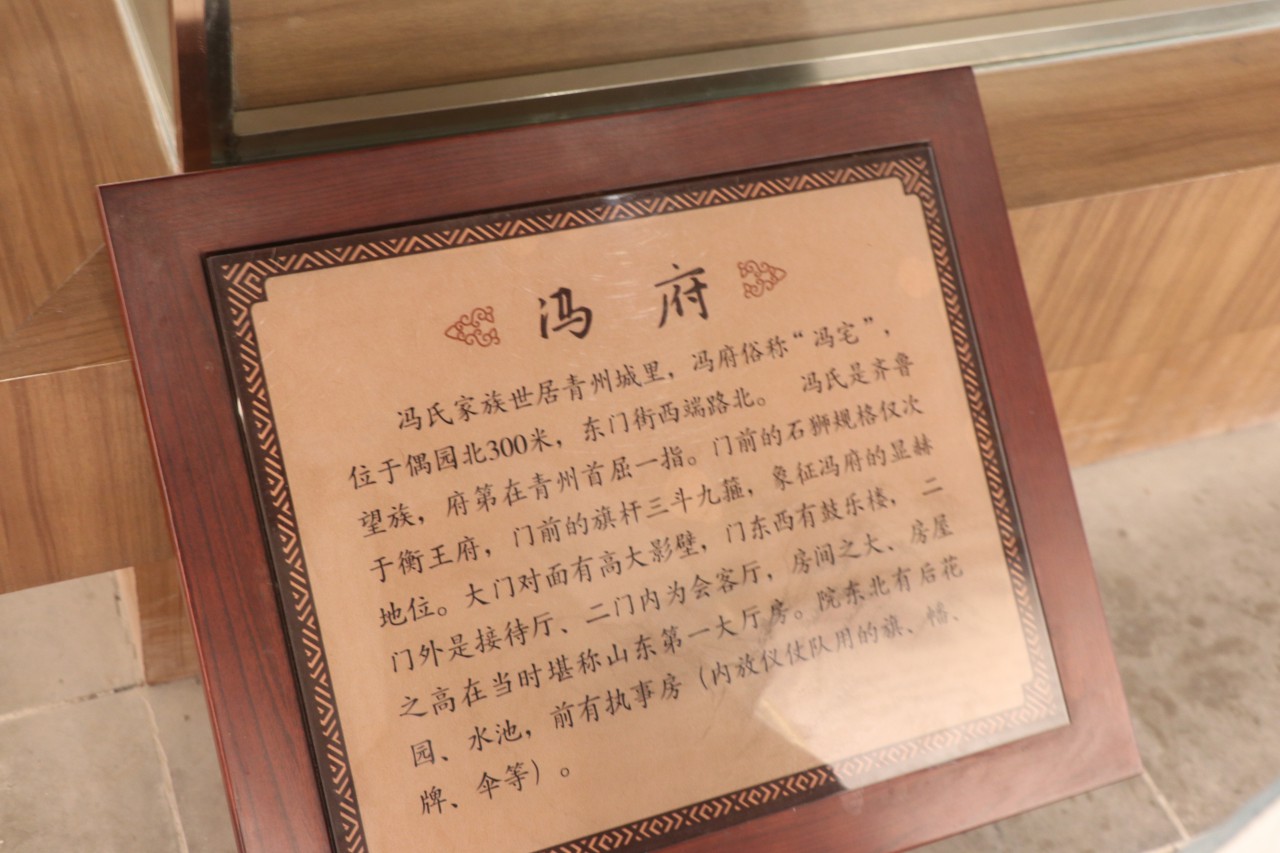 冯 府
冯氏家族世居青州城里，冯府俗称“冯宅”，
位于偶园北300米，东门街西端路北。 冯氏是齐鲁
望族，府第在青州首屈一指。门前的石狮规格仅次
于衡王府，门前的旗杆三斗九箍，象征冯府的显赫
地位。大门对面有高大影壁，门东西有鼓乐楼， 二
门外是接待厅、二门内为会客厅，房间之大、房屋
之高在当时堪称山东第一大厅房。院东北有后花
园、水池，前有执事房（内放仪仗队用的旗、幡、
牌、伞等）。